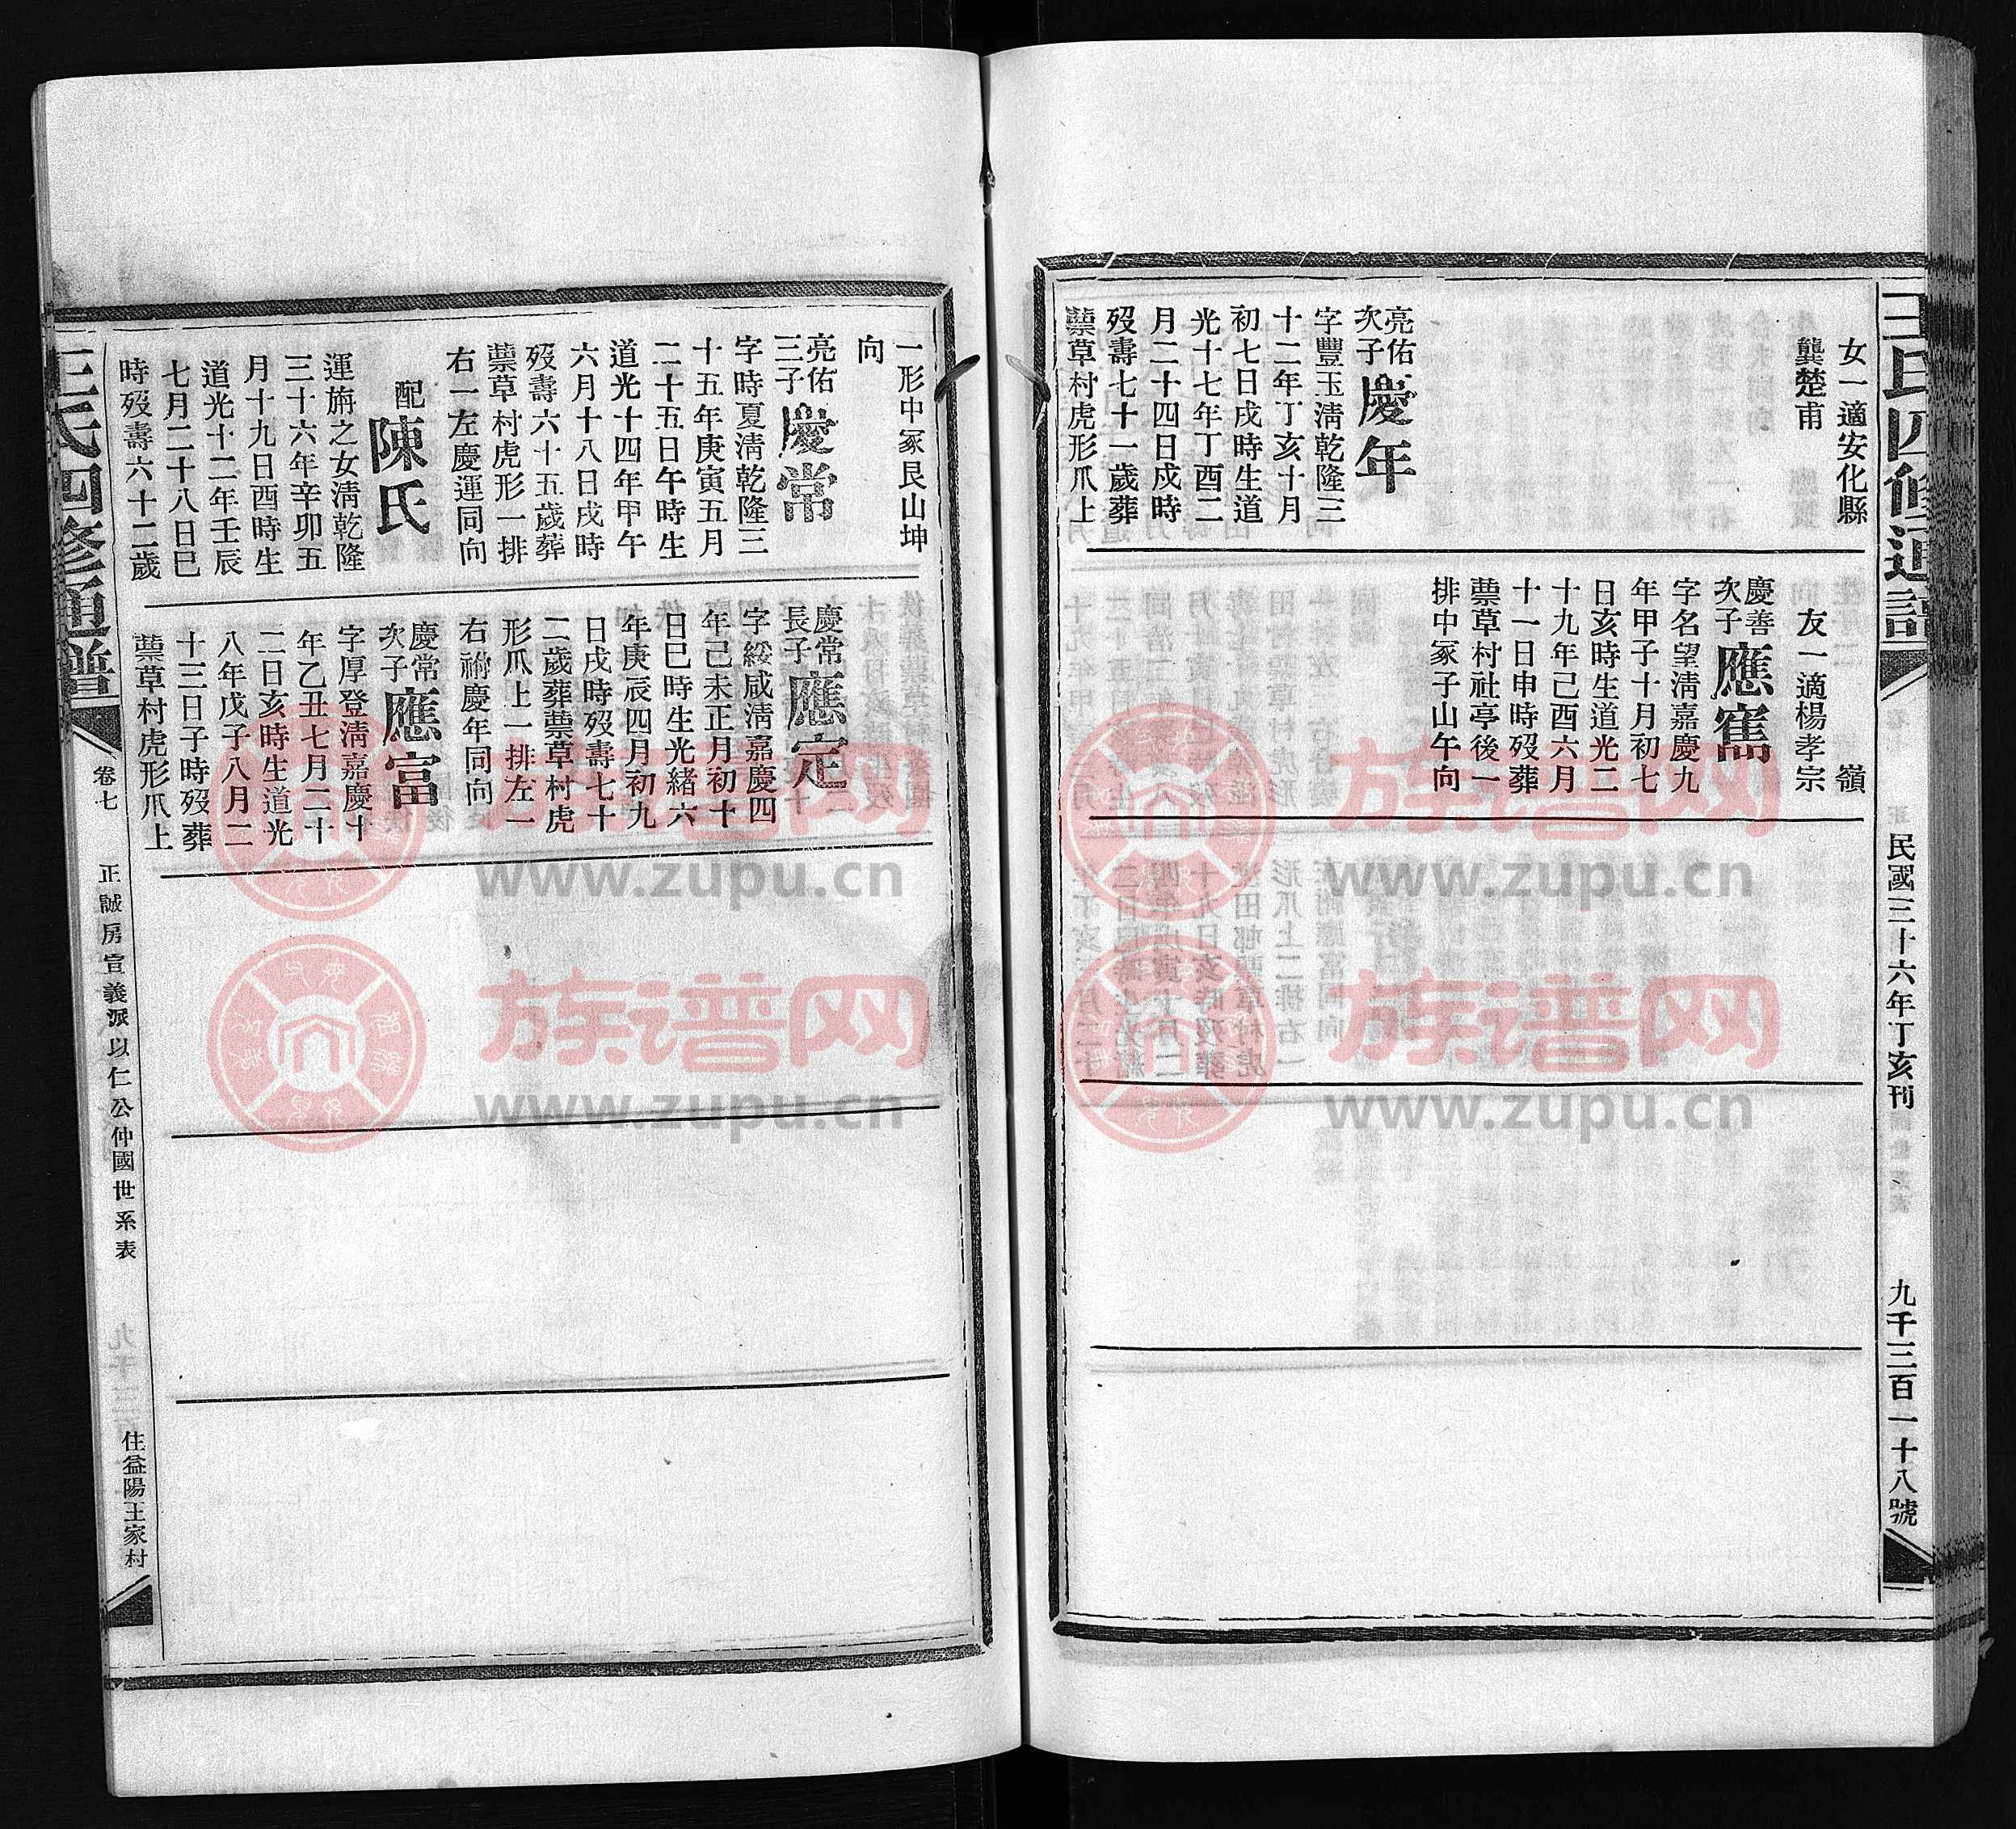 王氏四修通譜
民國三十六年丁亥刊
九千三百一十八號
女一適安化縣
龔楚甫
亮佑
次子
慶年
字豐玉淸乾隆三
十二年丁亥十月
初七日戌時生道
光十七年丁酉二
月二十四日戌時
歿壽七十一歲葬
蘽草村虎形爪上
嶺
友一適楊孝宗
慶善
次子
應寯
字名望淸嘉慶九
年甲子十月初七
日亥時生道光二
十九年己酉六月
十一日申時歿葬
蘽草村社亭後一
排中冢子山午向
一形中冢艮山坤
向
亮佑
三子
慶常
字時夏淸乾隆三
十五年庚寅五月
二十五日午時生
道光十四年甲午
六月十八日戌時
歿壽六十五歲葬
蘽草村虎形一排
右一左慶運同向
配
陳氏
運旃之女淸乾隆
三十六年辛卯五
月十九日酉時生
道光十二年壬辰
七月二十八日巳
時歿壽六十二歲
慶常
長子
應定
字綏咸淸嘉慶四
年己未正月初十
日巳時生光緒六
年庚辰四月初九
日戌時歿壽七十
二歲葬蘽草村虎
形爪上一排左一
右祔慶年同向
慶常
次子
應富
字厚登淸嘉慶十
年乙丑七月二十
二日亥時生道光
八年戊子八月二
十三日子時歿葬
蘽草村虎形爪上
王氏四修通譜
卷七
正誠房宣義派以仁公仲國世系表
住益陽王家村
族谱网
www.zupu.cn
族谱网
www.zupu.cn
族谱网
www.zupu.cn
族谱网
www.zupu.cn